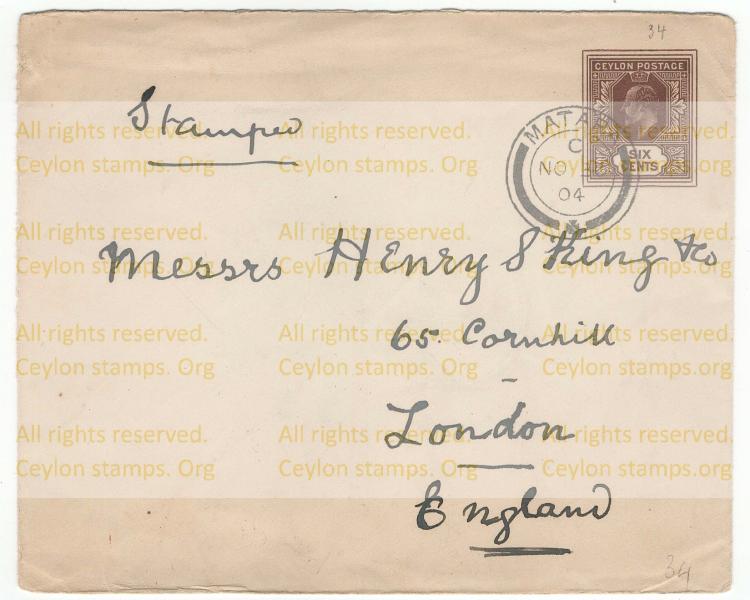 34
CEYLON POSTAGE
SIX
CENTS
MATA
C
NO
04
Stamped
Messrs Henry S King & Co
65. Cornhill
London
England
34
All rights reserved. All rights reserved. All rights reserved.
Ceylon stamps. Org Ceylon stamps. Org Ceylon stamps.org
All rights reserved. All rights reserved. All rights reserved.
Ceylon stamps. Org Ceylon stamps. Org Ceylon stamps.org
All rights reserved. All rights reserved. All rights reserved.
Ceylon stamps. Org Ceylon stamps. Org Ceylon stamps.org
All rights reserved. All rights reserved. All rights reserved.
Ceylon stamps. Org Ceylon stamps. Org Ceylon stamps.org